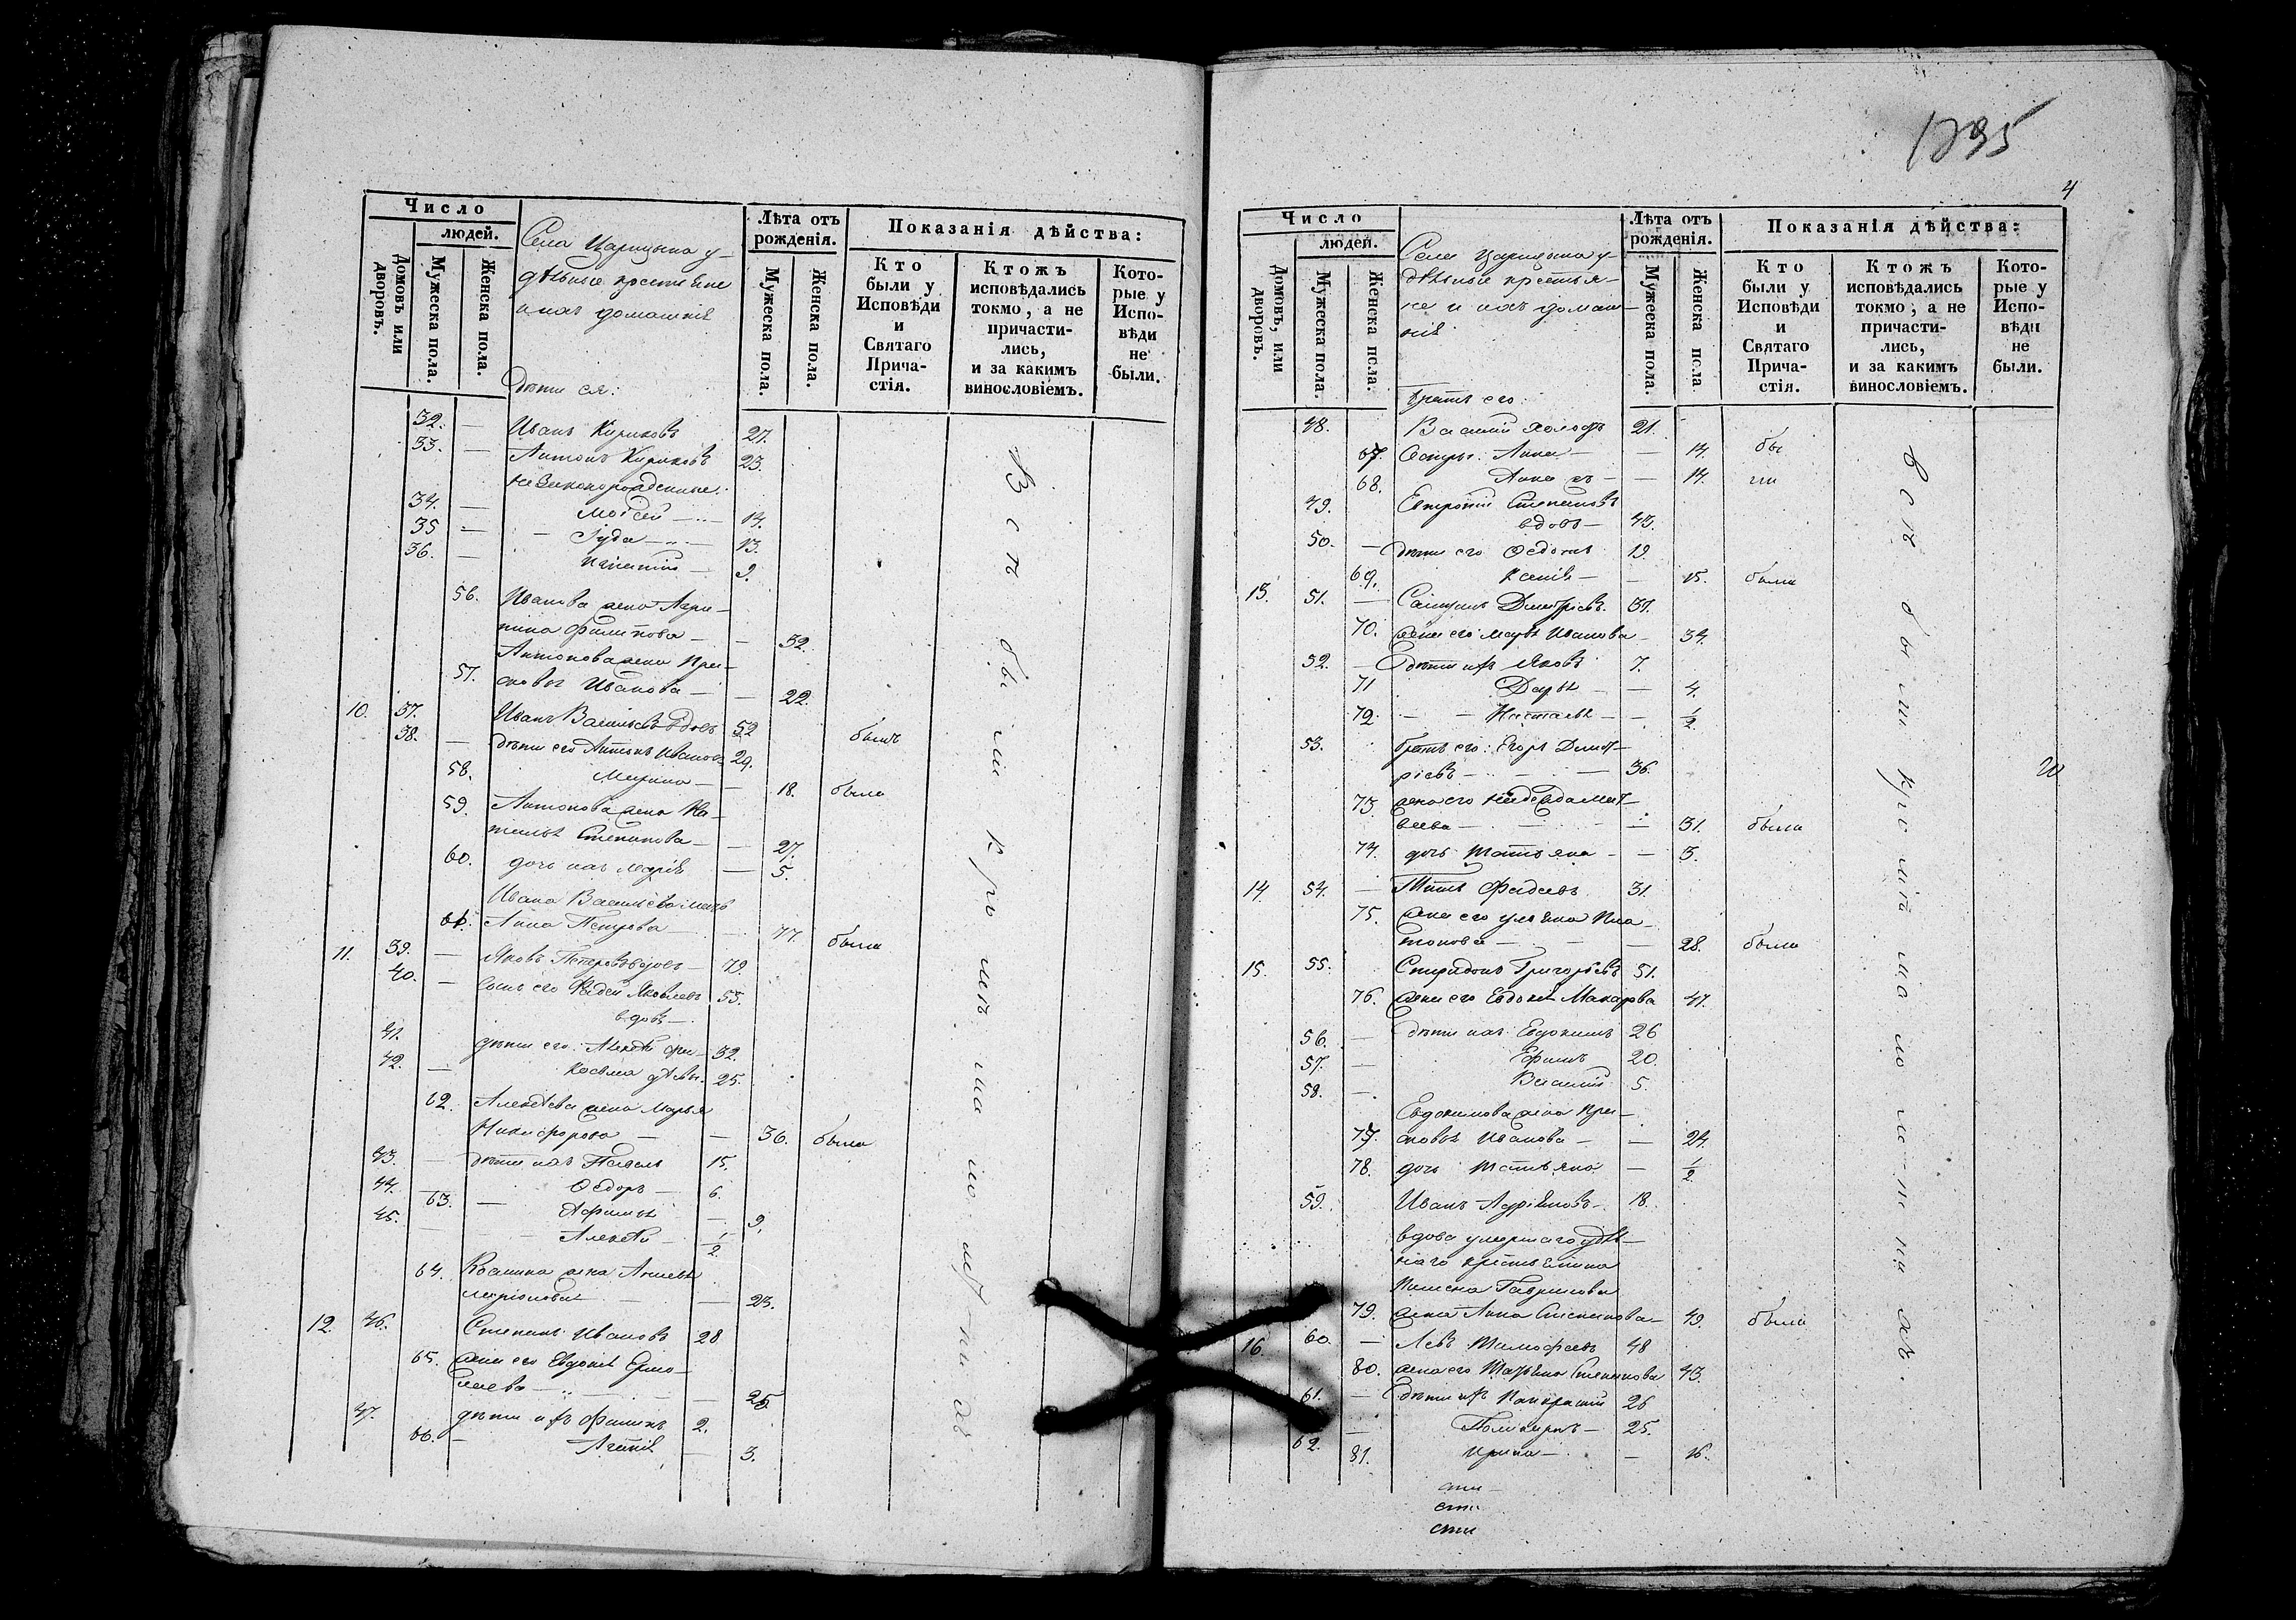 Число
людей.
Домовъ или дворовъ.
Мужеска пола.
Женска пола.
Села Царицына у-
дѣльные крестьяне
и ихъ домашніе
Лѣта отъ рожденія.
Мужеска пола.
Женска пола.
Показанія дѣйства:
Кто были у Исповѣди и Святаго Причастія.
Ктожъ исповѣдались токмо, а не причастились, и за какимъ винословіемъ.
Которые у Исповѣди не были.
дѣти ея:
32. — Иванъ Кириковъ 27.
33. — Антонъ Кириковъ 23.
незаконорожденные:
34. — Моѵсей — 14.
35 — Іуда — 13.
36. — Игнатій — 9.
56. Иванова жена
Филипова — — 32.
57. Антонова жена Прас-
ковья Иванова — — 22.
10. 37. Иванъ Васильевъ вдовъ 52 былъ
38. — дѣти его Антонъ Ивановъ 29.
58. Марина — — 18. была
59. Антонова жена На-
талья Степанова — — 27.
60. дочь ихъ Марія — 5.
Ивана Васильева мать
61. Анна Петрова — 77. была
11. 39. — Яковъ Петровъ вдовъ — 79.
40. — сынъ его Фадей Яковлевъ 55.
вдовъ —
41. дѣти его: Алексѣй 32.
42. — Косьма 25.
62. Алексѣева жена Марья
Никифорова — — 36. была
43. — дѣти ихъ Павелъ 15.
44. — Ѳедоръ — 6.
63. — Афимья — 9.
45. — Алексѣй — 1/2
64. Космина жена
— 23.
12. 46. Степанъ Ивановъ 28
65. жена его Евдокія Ермо-
лаева — — 25.
47. дѣти ихъ Филипъ 2.
66. — Агапія — 3.
Всѣ были кромѣ малолѣтнихъ
1895
4
Число
людей.
Домовъ, или дворовъ.
Мужеска пола.
Женска пола.
Села Царицына у-
дѣльные крестья-
не и ихъ домаш-
ніе
Лѣта отъ рожденія.
Мужеска пола.
Женска пола.
Показанія дѣйства:
Кто были у Исповѣди и Святаго Причастія.
Ктожъ исповѣдались токмо, а не причастились, и за какимъ винословіемъ.
Которые у Исповѣди не были.
Братъ его:
48. Василій холостъ 21.
67. Сестры: Анна — — 14. бы
68. — — 14. ли
49. Степановъ
вдовъ — 43.
50. — дѣти его Ѳедотъ 19.
69. Ксенія — — 15. была
13. 51. — Дмитріевъ 37.
70. жена его Марья Иванова — 34.
52. — дѣти ихъ Яковъ 7.
71 Дарья — — 4.
72. — — Наталья — — 1/2
53. братъ его: Егоръ Дмит-
ріевъ — — 36.
73. жена его Надежда Мат-
веева — — 31. была
74. дочь Татьяна — — 3.
14. 54. — Титъ Фадеевъ 31.
75. жена его Ульяна Пла-
тонова — — 28. была
15. 55. Спиридонъ Григорьевъ 51.
76. жена его Евдокія Макарова 47.
56. — дѣти ихъ Евдокимъ 26
57. — Ефимъ 20.
58. — Василій 5.
Евдокимова жена Прас-
77. ковья Иванова — — 24.
78. дочь Татьяна — 1/2
59. Иванъ Адріяновъ — 18.
вдова умершаго удѣль-
наго крестьянина
Гаврилова
79. жена Анна Степанова — 49. была
16. 60. — Левъ Тимофеевъ 48
80. жена его Татьяна Степанова 43.
61. — дѣти ихъ Панкратій 26
62. — Поликарпъ — 25.
81. Ирина — — 16.
всѣ были кромѣ малолѣтнихъ.